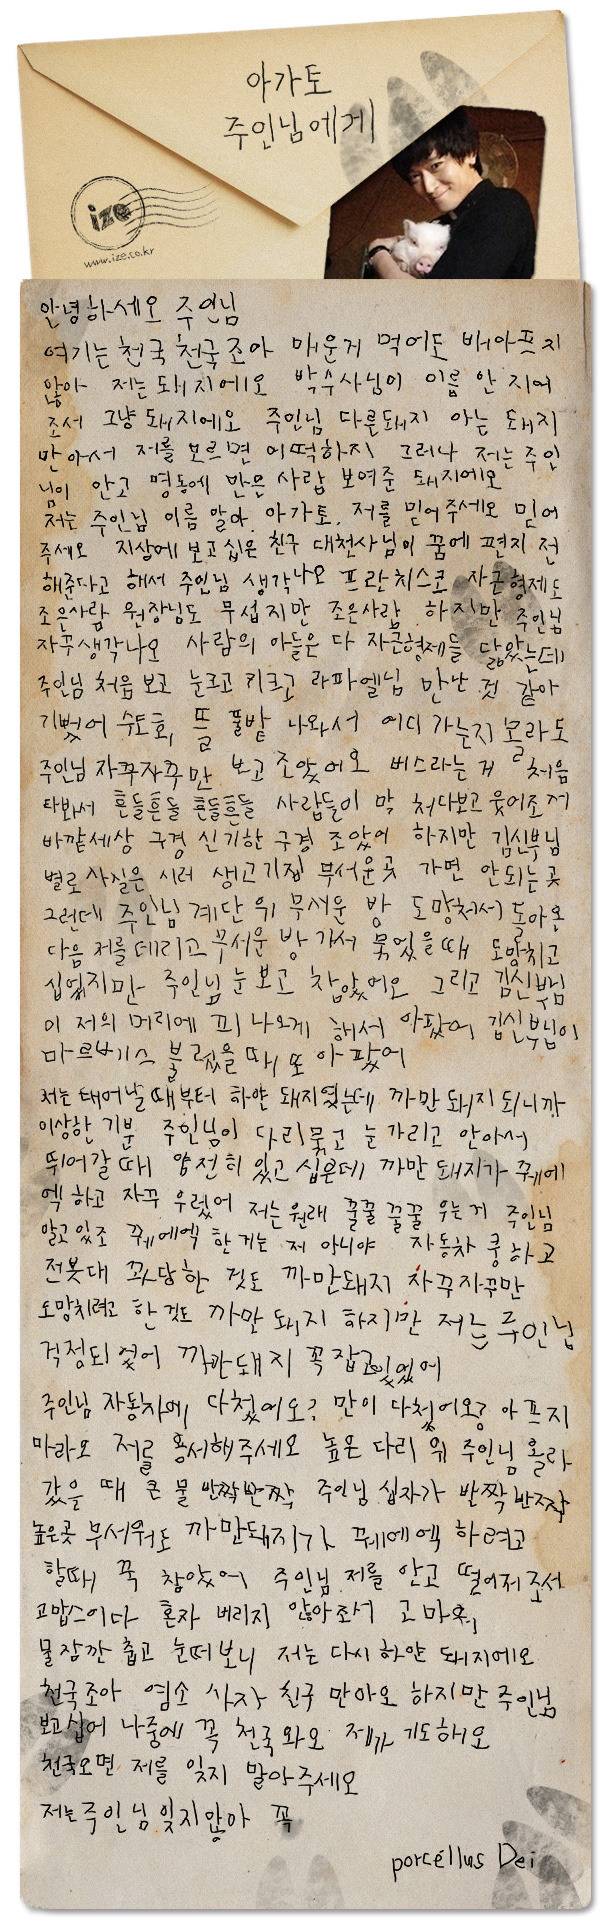 아가토
주인님에게
ize
www.ize.co.kr
안녕하세오 주인님
여기는 천국 천국 조아 매운거 먹어도 배아프지
않아 저는 돼지에오 박수사님이 이름 안 지어
조서 그냥 돼지에오 주인님 다른돼지 아는 돼지
만아서 저를 모르면 어떡하지 그러나 저는 주인
님이 안고 명동에 만은 사람 보여준 돼지에오
저는 주인님 이름 알아. 아가토. 저를 믿어주세오 믿어
주세오 지상에 보고십은 친구 대천사님이 꿈에 편지 전
해준다고 해서 주인님 생각나오 프란치스코 자근형제도
조은사람 원장님도 무섭지만 조은사람 하지만 주인님
자꾸생각나오 사람의 아들은 다 자근형제들 닮았는데
주인님 처음 보고 눈크고 키크고 라파엘님 만난 것 같아
기뻤어 수도회, 뜰 풀밭 나와서 어디 가는지 몰라도
주인님 자꾸자꾸만 보고 조았어오 버스라는 거 처음
타봐서 흔들흔들 흔들흔들 사람들이 막 처다보고 웃어조거
바깥세상 구경 신기한 구경 조았어 하지만 김신부님
별로 사실은 시러 생고기집 무서운곳 가면 안되는곳
그런데 주인님 계단 위 무서운 방 도망처서 돌아온
다음 저를 데리고 무서운 방 가서 묶었을때 도망치고
십엇지만 주인님 눈 보고 참았어오 그리고 김신부님
이 저의 머리에 피 나오게 해서 아팠어 김신부님이
마르바스 불렀을 때 또 아팠어
저는 태어날때부터 하얀 돼지였는데 까만 돼지 되니까
이상한 기분 주인님이 다리묶고 눈 가리고 안아서
뛰어갈 때 얌전히 있고 십은데 까만 돼지가 꾸에
엑 하고 자꾸 우렀어 저는원래 꿀꿀 꿀꿀 우는거 주인님
알고있조 꾸에에엑 한거는 저 아니야 자동차 쿵 하고
전봇대 꽈당한 것도 까만돼지 자꾸자꾸만
도망치려고 한것도 까만 돼지 하지만 저는 주인님
걱정되었어 까만돼지 꼭 잡고있었어
주인님 자동차에 다쳤어오? 만이 다쳤어오? 아프지
마라오 저를 용서해주세오 높은 다리 위 주인님 올라
갔을 때 큰 물 반짝반짝 주인님 십자가 반짝반짝
높은곳 무서워도 까만돼지가 꾸에에엑 하려고
할때 꾹 참았어 주인님 저를 안고 떨어저조서
고맙스이다 혼자 버리지 않아조서 고마워
물 잠깐 춥고 눈떠보니 저는 다시 하얀 돼지에오
천국조아 염소 사자 친구 만아오 하지만 주인님
보고십어 나중에 꼭 천국와오 제가 기도해오
천국오면 저를 잊지 말아주세오
저는 주인님 잊지않아 꼭
porcéllus Dei